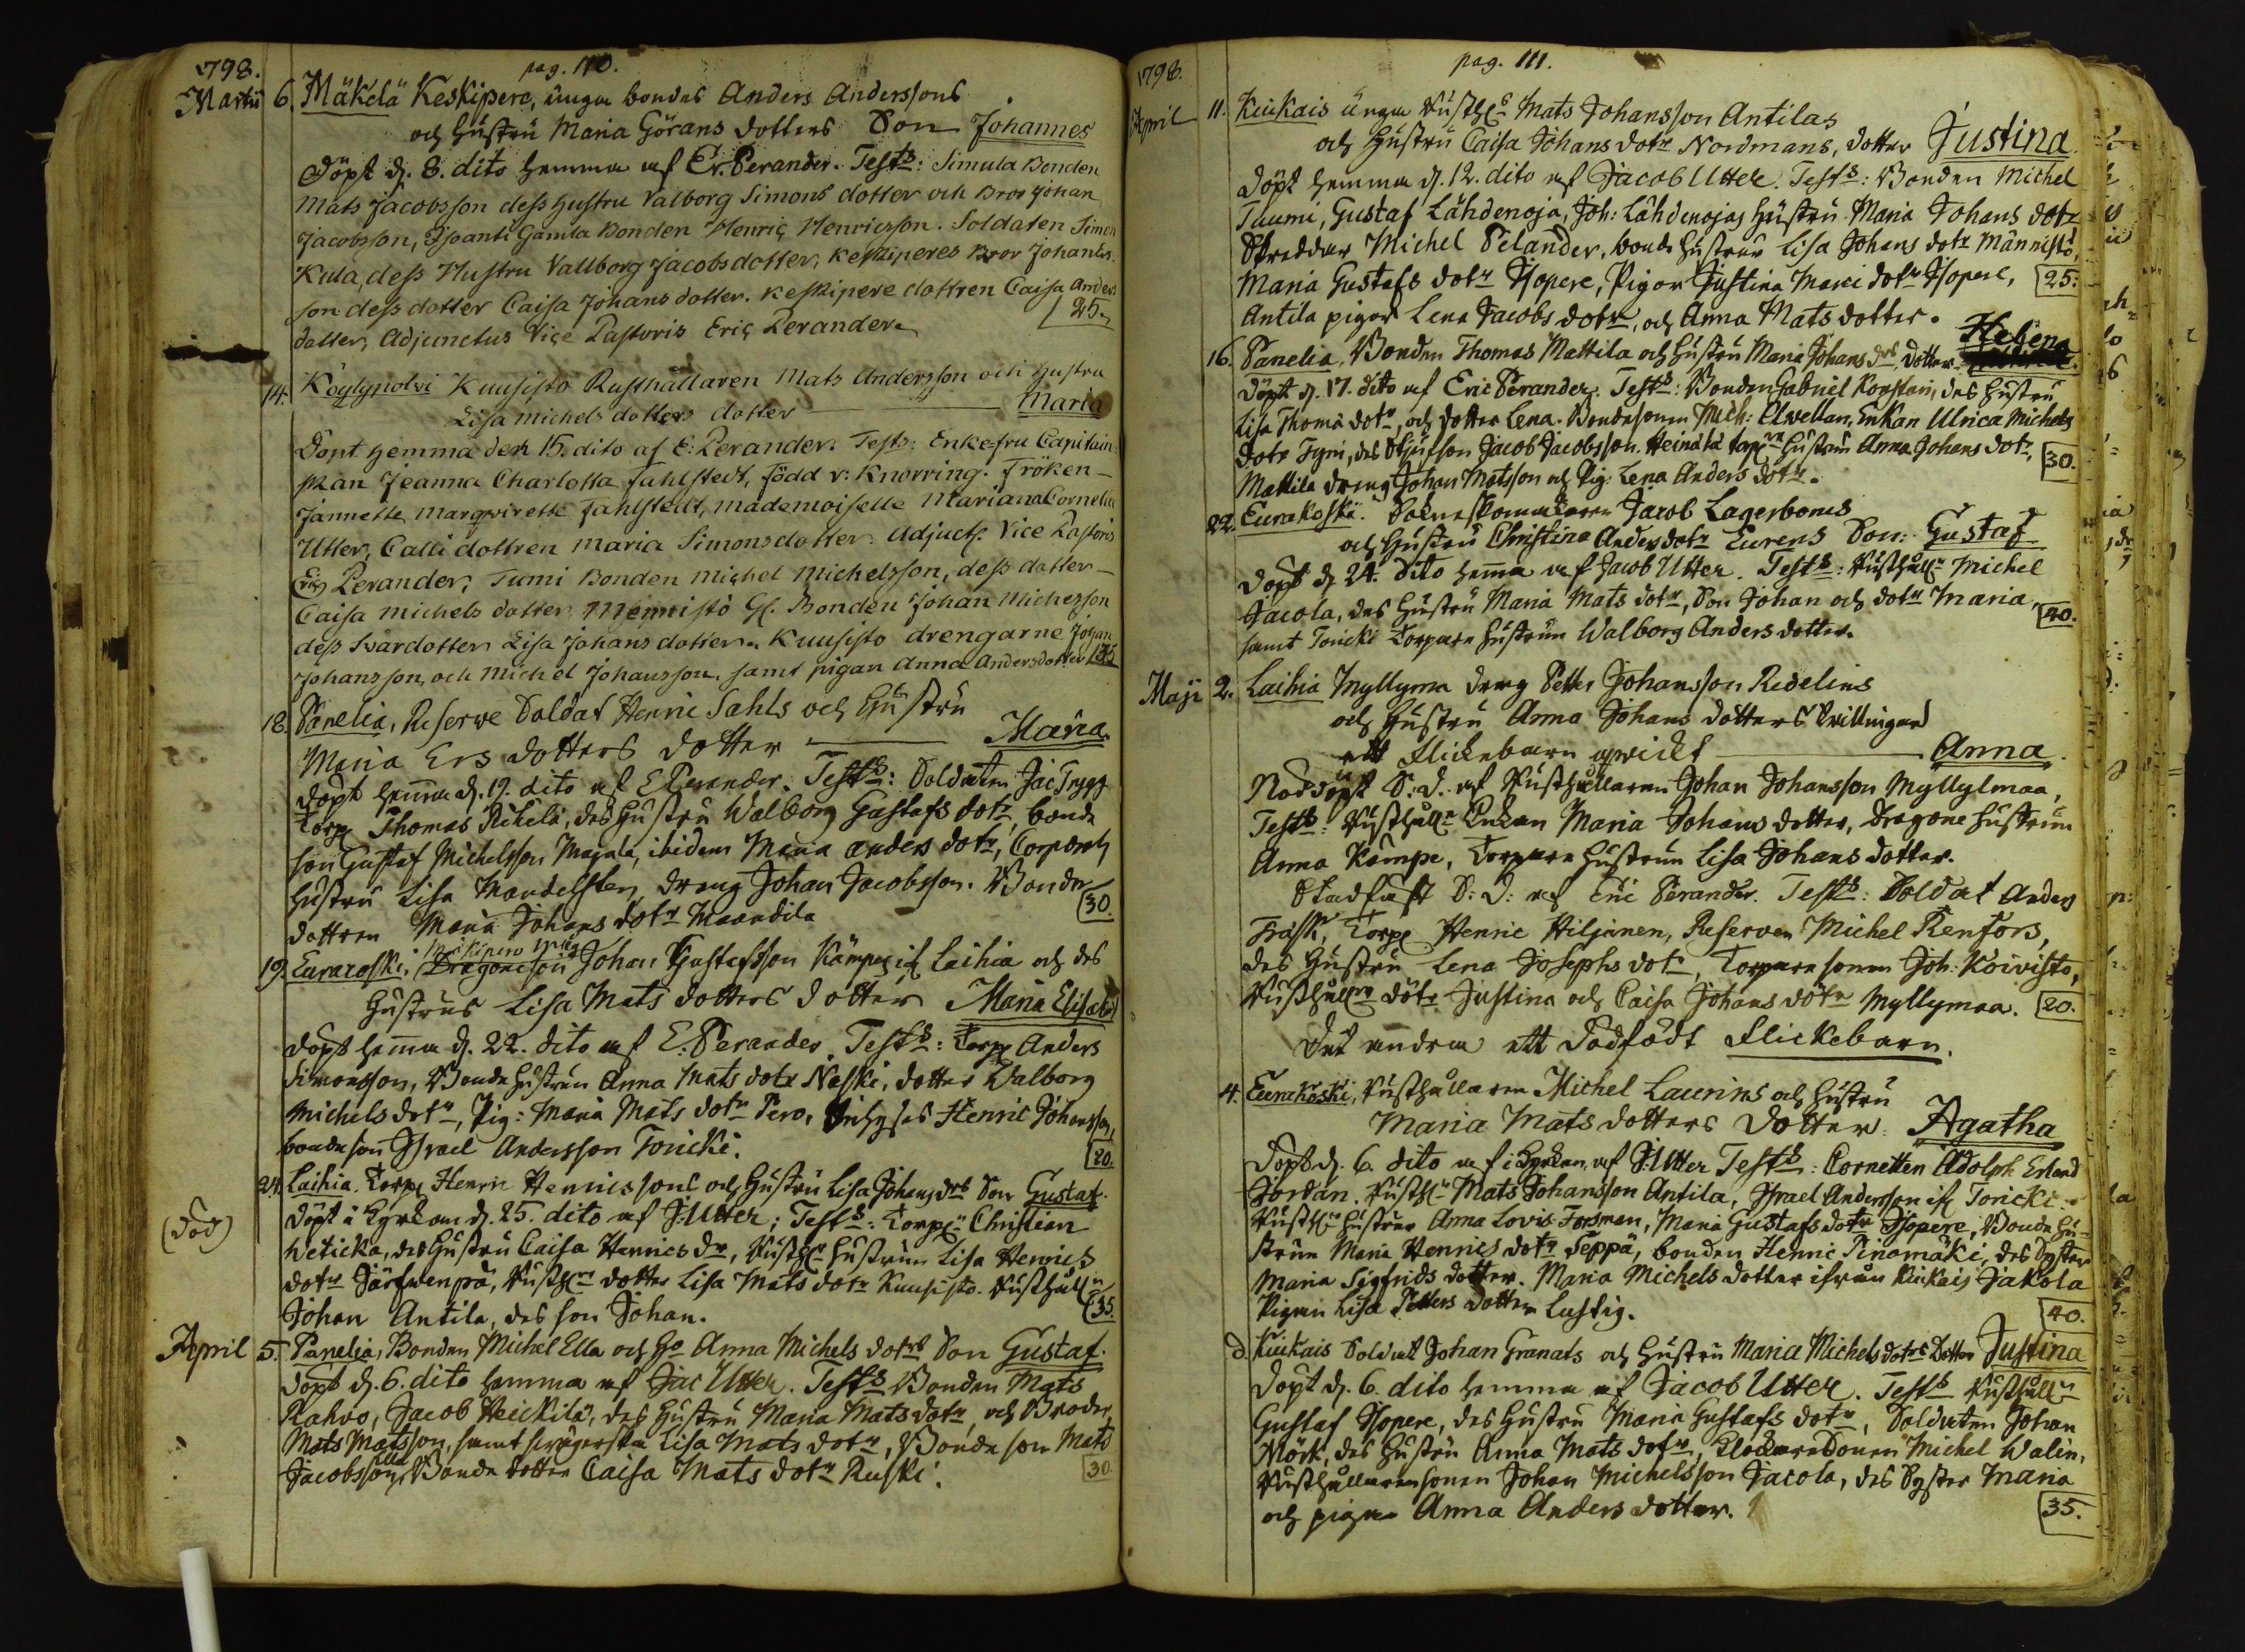 1798.
pag. 110.
Martii 6. Mäkelä Keskipere, unga bondes Anders Anderssons
och hustru Maria Görans dotters Son Johannes
Döpt d. 8. dito hemma af Er. Perander. Tests: Simula Bonden
Mats Jacobsson dess hustru Valborg Simons dotter och Bror Johan
Jacobsson, Isoanti Gamla Bonden Henric Henricsson. Soldaten Simon
Kula, dess Hustru Vallborg Jacobsdotter, Keskiperes Bror Johan Anders
son dess dotter Caisa Johans dotter. Keskipere dottren Caisa Anders
dotter, Adjunctus Vice Pastoris Eric Perander.
25.
14. Köylypolvi Kuusisto Rusthållaren Mats Andersson och hustru
Lisa Michels dotters dotter Maria
Döpt hemma den 15. dito af E: Perander. Tests: Enkefru Capitain
skan Jeanna Charlotta Fahlstedt, född v: Knorring. Fröken
Jannette Margvirette Fahlstedt, mademoiselle Mariana Cornelia
Utter, Calli dottren Maria Simonsdotter. Adjuct. Vice Pastoris
Eric Perander, Tumi Bonden Michel Michelsson, dess dotter
Caisa Michels dotter. Mennistö Gl. Bonden Johan Michelsson
dess Svärdotter Lisa Johans dotter. Kuusisto drengarne Johan
Johansson, och Michel Johansson, samt pigan Anna Andersdotter 35
18. Panelia, Reserve Soldat Henric Sahls och Hustru
Maria Ers dotters dotter Maria.
döpt hemma d. 19. dito af E Perander. Tests: Soldaten Jac Trygg
Torp. Thomas Rikelä, des Hustru Walborg Gustafs dotr, bonde
son Gustaf Michelsson Majala, ibidem Maria Anders dotr, Corporals
hustru Lisa Mandelsten, dreng Johan Jacobsson. Bonde
dottren Maria Johans dotr Maandila
30.
19. Euraxoski, Dragoneson Johan Gustafsson Kämpe if. Laihia och des
Hustrus Lisa Mats dotters dotter Maria Elisabet
döpt hema d. 22. dito af E: Perander. Tests: Torp. Anders
Simonsson, Bonde hustrun Anna Mats dotr Naski, dotter Walborg
Michels dotr, Pig: Maria Mats dotr Pero, Inhyses Henric Johansson,
bonde son Israel Andersson Toricki.
20.
24. Laihia. Torp. Henric Henricssons och Hustru Lisa Johans drs Son Gustaf.
(död)
döpt i Kyrkan d. 25. dito af J: Utter; Tests: Torp. Christian
Weticka, des Hustru Caisa Henrics dr, Rusth. hustrun Lisa Henrics
dotr Järfwenpä, Rusth. dotter Lisa Mats dotr Kuusisto. Rusthålln
Johan Antila, des son Johan.
35
April 5. Panelia, Bonden Michel Ella och Ho Anna Michels dotrs Son Gustaf.
Döpt d. 6. dito hemma af Jac Utter. Tests Bonden Mats
Rahvo, Jacob Heickilä, des Hustru Maria Mats dotr, och Broder
Mats Matsson, samt swägerska Lisa Mats dotr, Bonde son Mats
Jacobsson Ella, Bonde dotter Caisa Mats dotr Ruski.
30.
1798.
pag. 111.
April 11. Kiukais unga Rusth. Mats Johansson Antilas
och Hustru Caisa Johans dotr Nordmans, dotter Justina
döpt hemma d. 12. dito af Jacob Utter. Tests: Bonden Michel
Tuumi, Gustaf Lähdenoja, Joh: Lähdenojas Hustru Maria Johans dotr
Skreddar Michel Pelander, bonde hustrun Lisa Johans dotr Männistö,
Maria Gustafs dotr Isopere, Pigor Justina Marci dotr Isopere,
25.
Antila pigor Lena Jacobs dotr, och Anna Mats dotter.
16. Panelia, Bonden Thomas Mattila och Hustru Maria Johans drs dotter Helena
döpt d. 17. dito af Eric Perander. Tests: Bonden Gabriel Konstari, des Hustru
Lisa Thoma dotr, och dotter Lena. Bondesonen Mich: Elwellan, Enkan Ulrica Michels
dotr Tyni, des Stjufson Jacob Jacobsson. Heinälä torp. Hustrun Anna Johans dotr,
30.
Mattila dreng Johan Matsson och Pig. Lena Anders dotr.
22. Eurakoski. Sokneskomakaren Jacob Lagerboms
och Hustru Christina Anders dotr Eurens Son: Gustaf
Döpt d. 24. dito hema af Jacob Utter. Tests: Rusthålln Michel
Jacola, des Hustru Maria Mats dotr, Son Johan och dotr Maria,
samt Toricki Torpare hustrun Walborg Anders dotter.
40.
Maji 2. Laihia Myllyma dreng Petter Johansson Redelins
och Hustru Anna Johans dotters twillingar
ett flickebarn qwickt Anna
Nöddöpt S: D. af Rusthållaren Johan Johansson Myllylmaa,
Tests: Rusthålln Enkan Maria Johans dotter, Dragone hustrun
Anna Kämpe, Torpare Hustrun Lisa Johans dotter.
Stadfäst S: D: af Eric Perander. Tests: Soldat Anders
Frisk, Torp. Henric Hiljanen, Reserven Michel Renfors,
des Hustru Lena Josephs dotr, Torpare sonen Joh: Koivisto,
Rusthålln dötr Justina och Caisa Johans dötr Myllymaa. 20.
Det andra ett Dödfödt Flickebarn.
4. Eurakoski, Rusthållaren Michel Laurins och Hustru
Maria Mats dotters Dotter. Agatha
Döpt d. 6. dito i Kyrkan, af J: Utter Tests: Cornetten Adolph Erland
Jordan. Rusth. Mats Johansson Antila, Israel Andersson if. Toricki.
Rusth. hustrun Anna Lovis: Forsman, Maria Gustafs dotr Isopere, Bonde hu-
strun Maria Henrics dotr Seppä, bonden Henric Tinomäki, des Syster
Maria Sigfrids dotter. Maria Michels dotter ifrån Kiukais Jakola
Pigan Lisa Petters dotter Lustig.
40.
d. Kiukais Soldat Johan Granats och Hustru Maria Michels dotrs Dotter Justina
Döpt d. 6. dito hemma af Jacob Utter. Tests Rusthålln
Gustaf Isopere, des Hustru Maria Gustafs dotr, Soldaten Johan
Mörk, des Hustru Anna Mats dotr, Klockare Sonen Michel Walin,
Rusthållaresonen Johan Michelsson Jacola, des Syster Maria
och pigan Anna Anders dotter.
35.